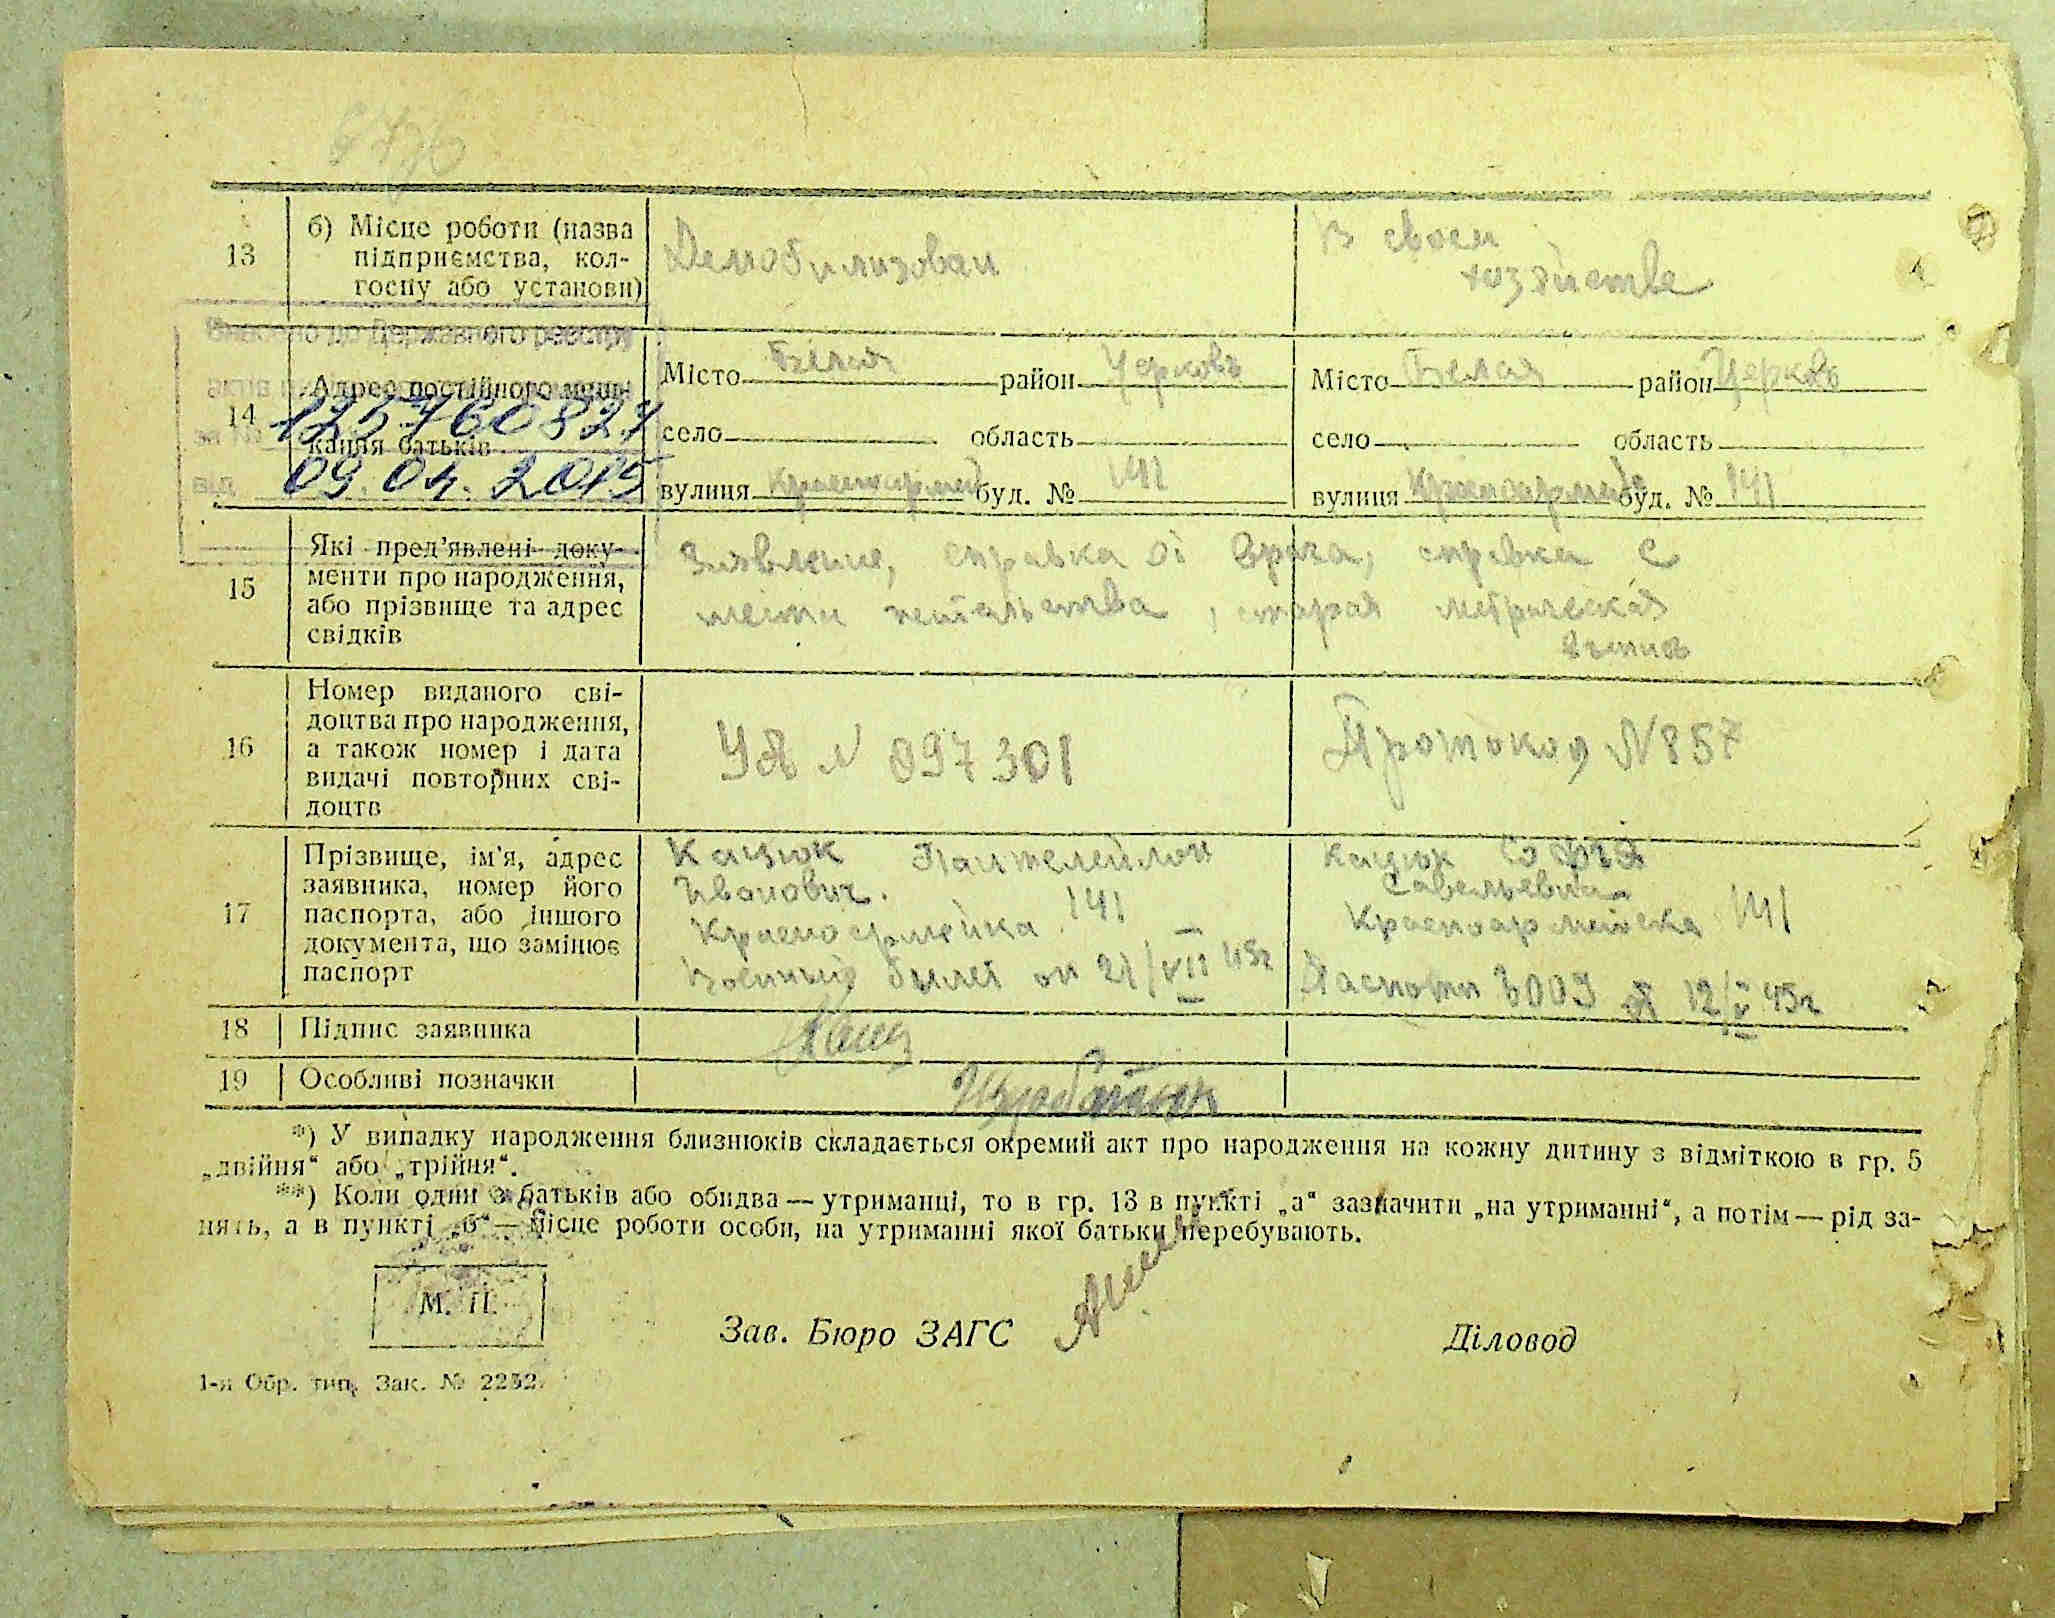 13
б) Місце роботи (назва
підприємства, кол-
госпу або установи)
Демобилизован
В своем
хозяйстве
Внесено до Державного реєстру
14
Адрес постійного меш-
кання батьків
125760827
від 09.04.2015
Місто Белая район Церковь
село область
вулиця Красноармей буд. № 141
Місто Белая район Церковь
село область
вулиця Красноармей буд. № 141
15
Які пред'явлені доку-
менти про народження,
або прізвище та адрес
свідків
Заявление, справка от врача, справка с
места жительства, старая метрическая
выпись
16
Номер виданого сві-
доцтва про народження,
а також номер і дата
видачі повторних сві-
доцтв
УЯ N 097301
Протокол N 857
17
Прізвище, ім'я, адрес
заявника, номер його
паспорта, або іншого
документа, що замінює
паспорт
Кацюк Пантелеймон
Иванович.
Красноармейска 141
Военный билет от 21/VII 45г
Кацюк София
Савельевна
Красноармейска 141
Паспорт от 12/V 45г
18 Підпис заявника
19 Особливі позначки
*) У випадку народження близнюків складається окремий акт про народження на кожну дитину з відміткою в гр. 5
„двійня“ або „трійня“.
**) Коли один з батьків або обидва — утриманці, то в гр. 13 в пункті „а“ зазначити „на утриманні“, а потім — рід за-
нять, а в пункті „б“ — місце роботи особи, на утриманні якої батьки перебувають.
М. П.
Зав. Бюро ЗАГС
Діловод
1-я Обр. тип. Зак. № 2252.